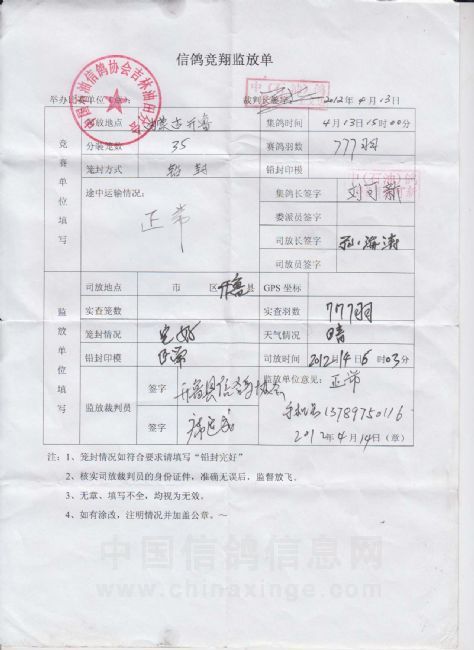 信鸽竞翔监放单
裁判长签字 2012年4月13日
司放地点 内蒙古开鲁 集鸽时间 4月13日15时00分
分装笼数 35 赛鸽羽数 777羽
笼封方式 铅封 铅封印模
途中运输情况: 正常
集鸽长签字 刘可新
委派员签字
司放长签字 孙海涛
司放员签字
竞赛单位填写
司放地点 市 区 开鲁县 GPS坐标
实查笼数 实查羽数 777羽
笼封情况 完好 天气情况 晴
铅封印模 正常 司放时间 2012年4日6时03分
监放裁判员 签字 开鲁县信鸽协会
签字
监放单位意见: 正常
手机号13789750116
2012年4月14日(章)
监放单位填写
注:1、笼封情况如符合要求请填写“铅封完好”
2、核实司放裁判员的身份证件,准确无误后,监督放飞。
3、无章、填写不全,均视为无效。
4、如有涂改,注明情况并加盖公章。~
中国信鸽信息网
www.chinaxinge.com